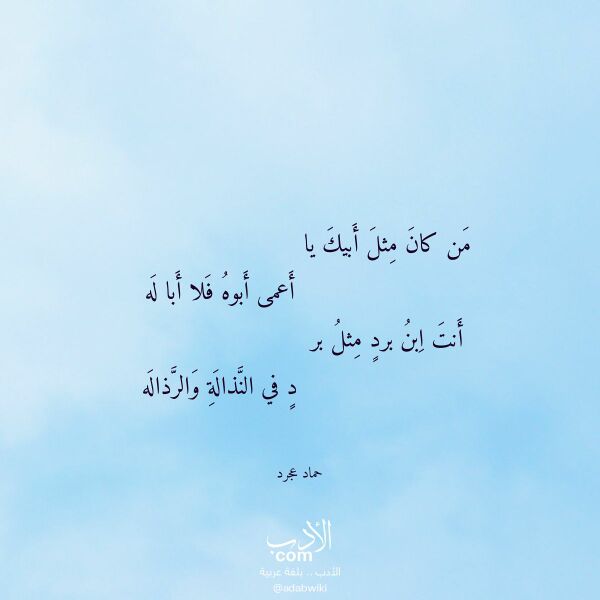 مَن كانَ مِثلَ أَبيكَ يا
أَعمى أَبوهُ فَلا أَبا لَه
أَنتَ اِبنُ بردٍ مِثلُ بر
دٍ في النَّذالَةِ وَالرَّذالَه
حماد عجرد
الأدب
com
الأدب .. بلغة عربية
@adabwiki